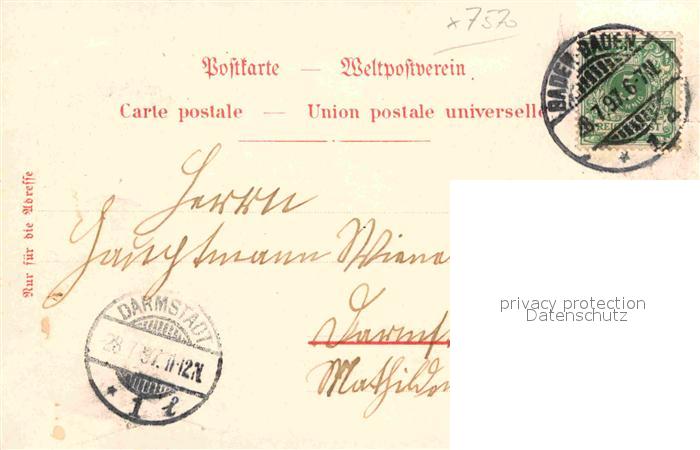 x 7570
Postkarte — Weltpostverein
Carte postale — Union postale universelle
Nur für die Adresse
BADEN-BADEN
7.97. 6-7N.
* 1 a
Herrn
Hauptmann Wiene
Darmst
Mathilden
DARMSTADT
28.7.97. 11-12N.
* 1 l
privacy protection
Datenschutz